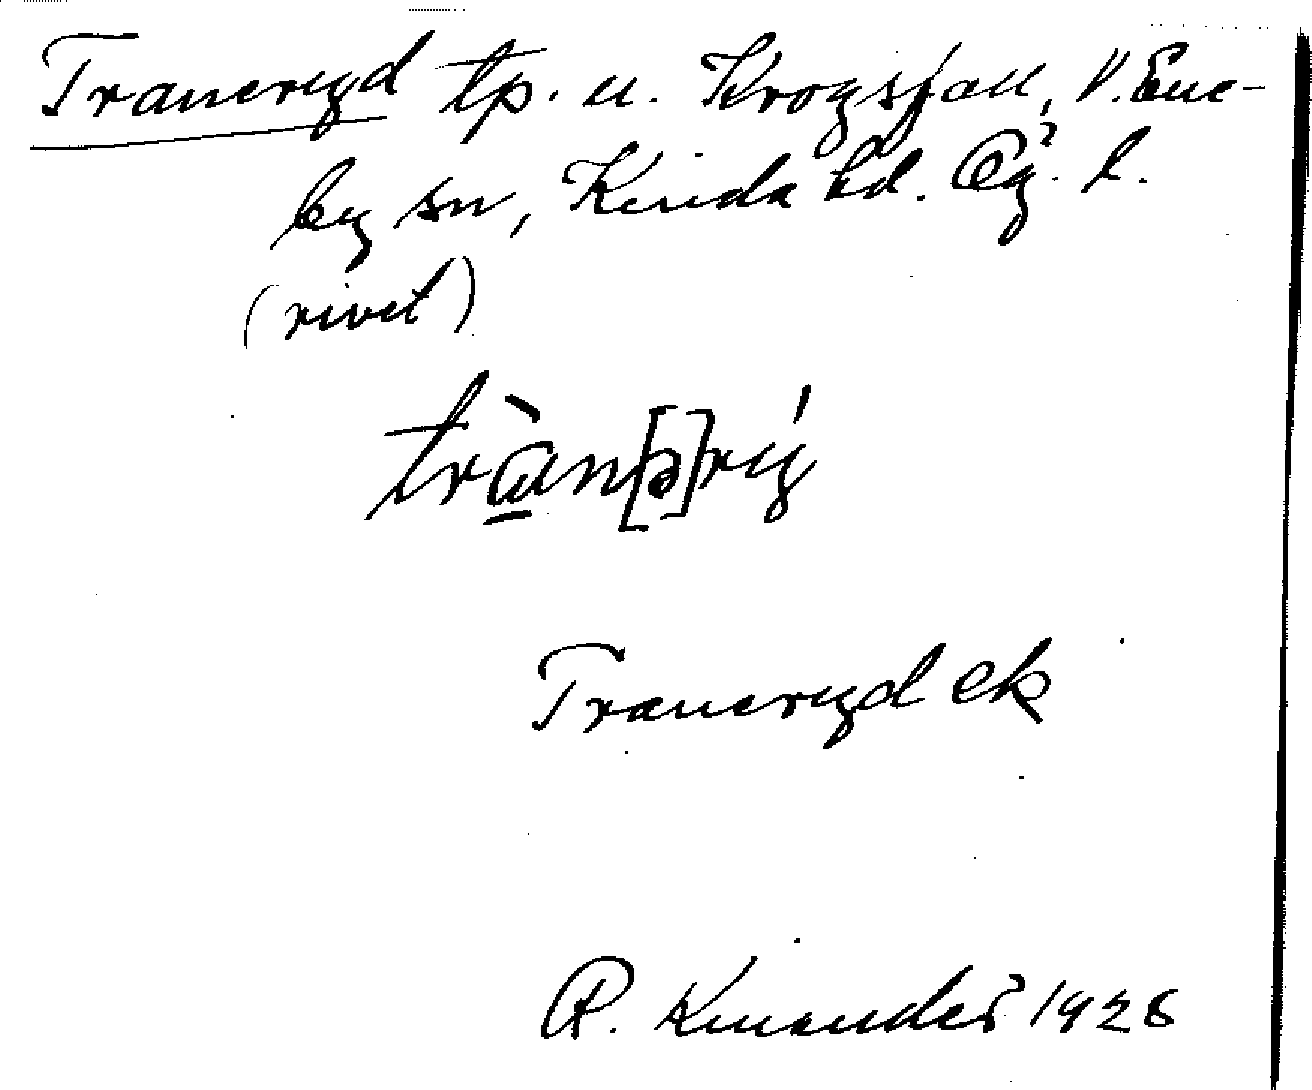 Traneryd tp. u. Krogsfall, V. Ene-
by sn, Kinda hd. Ög. l.
(rivet)
trɑ̀n[ə]rý
Traneryd ek
R. Kinander 1928